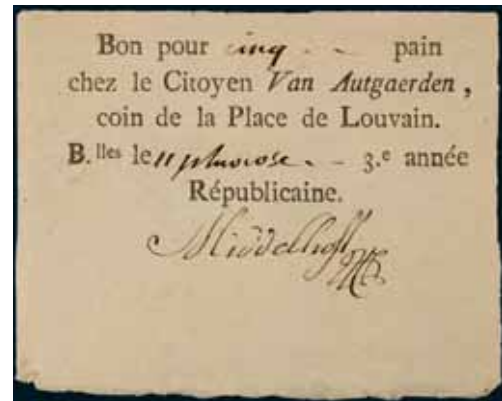 Bon pour cinq - - pain
chez le Citoyen Van Autgaerden,
coin de la Place de Louvain.
B.lles le 11 pluviose. - 3.e année
Républicaine.